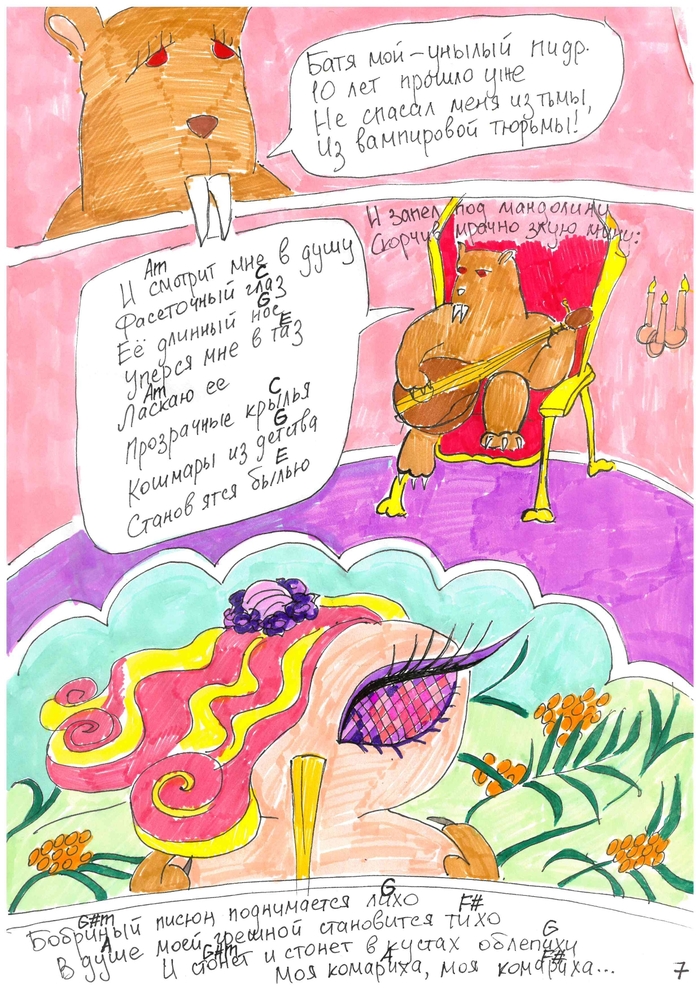 Батя мой – унылый пидр.
10 лет прошло уже
Не спасал меня из тьмы,
Из вампировой тюрьмы!
И запел под мандолину
Скорчив мрачно злую мину:
Am
И смотрит мне в душу
C
Фасеточный глаз
G
Её длинный нос
E
Уперся мне в таз
Am
Ласкаю ее
C
Прозрачные крылья
G
Кошмары из детства
E
Становятся былью
G#m G F#
Бобриный писюн поднимается лихо
A G#m G
В душе моей грешной становится тихо
И стонет и стонет в кустах облепихи
A F#
Моя комариха, моя комариха...
7